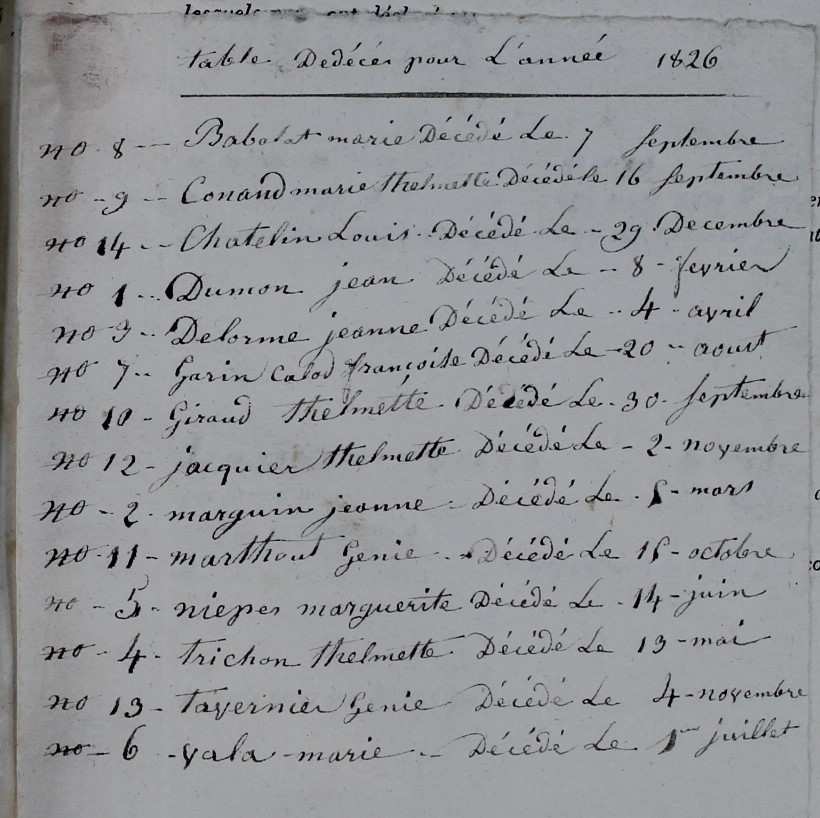 table Dedécés pour L'année 1826
no 8 -- Babolat marie Décédé Le 7 Septembre
no - 9 -- Conand marie thelmette Décédé le 16 Septembre
no 14 -- Chatelin Louis Décédé Le - 29 Decembre
no 1 -- Dumon jean Décédé Le -- 8 - fevrier
no 3 -- Delorme jeanne Décédé Le -- 4 - avril
no 7 -- Garin Calod françoise Décédé Le - 20 -- aoust
no 10 - Giraud thelmette Décédé Le - 30 - septembre
no 12 - jacquier thelmette Décédé Le - 2 - novembre
no - 2 - marguin jeanne - Décédé Le - 5 - mars
no 11 - marthout Genie - Décédé Le 15 - octobre
no - 5 - niepes marguerite Décédé Le - 14 - juin
no - 4 - trichon thelmette Décédé Le 13 - mai
no 13 - tavernier Genie Décédé Le 4 - novembre
no - 6 - vala - marie - Décédé Le 1er juillet